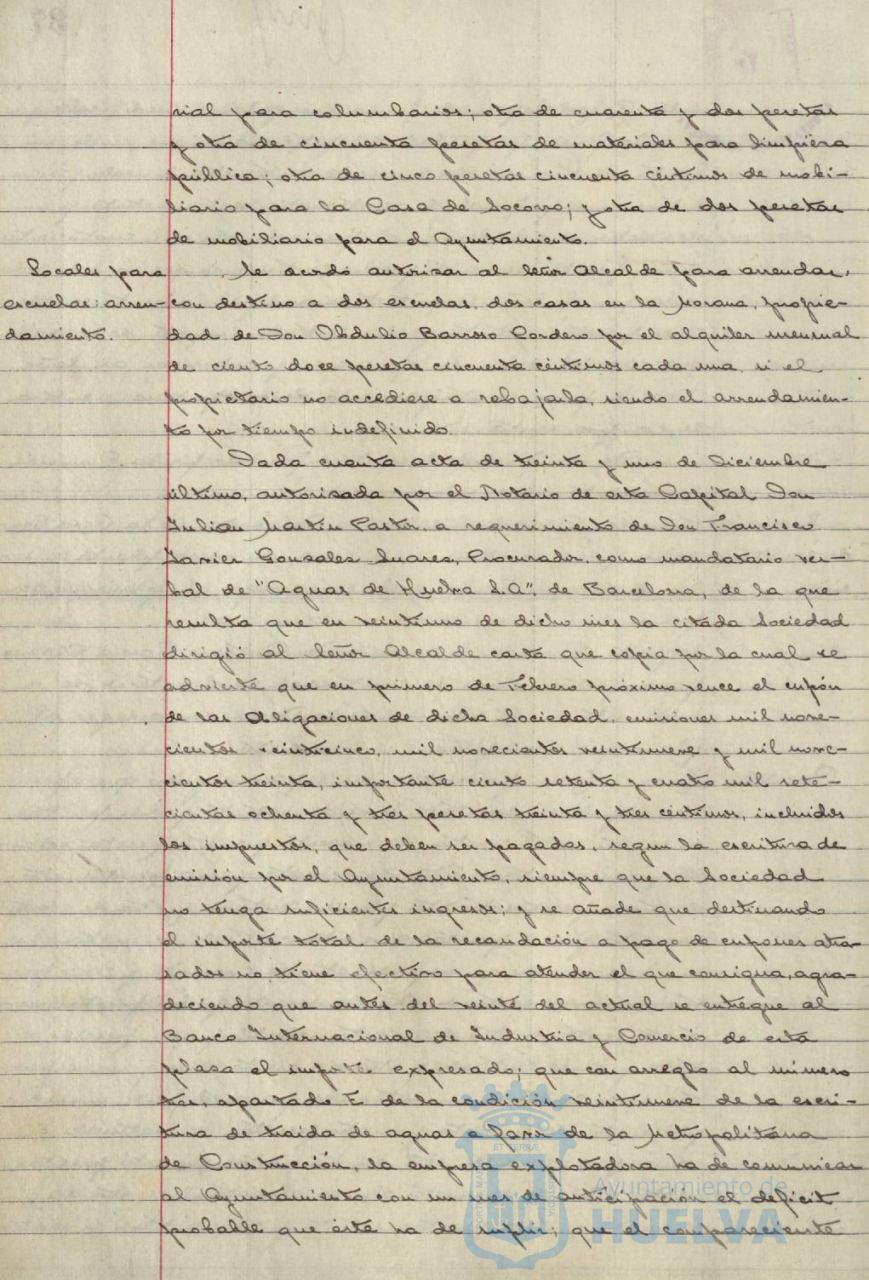 rial para columbarios; otra de cuarenta y dos pesetas
y otra de cincuenta pesetas de materiales para limpieza
pública; otra de cinco pesetas cincuenta céntimos de mobi-
liario para la Casa de Socorro; y otra de dos pesetas
de mobiliario para el Ayuntamiento.
Locales para
escuelas: arren-
damiento.
Se acordó autorizar al Señor Alcalde para arrendar,
con destino a dos escuelas, dos casas en la Morana, propie-
dad de Don Obdulio Barroso Cordero por el alquiler mensual
de ciento doce pesetas cincuenta céntimos cada una, si el
propietario no accediese a rebajarla, siendo el arrendamien-
to por tiempo indefinido.
Dada cuenta acta de treinta y uno de Diciembre
último, autorizada por el Notario de esta Capital Don
Julian Martín Pastor, a requerimiento de Don Francisco
Javier Gonzales Suares, Procurador, como mandatario ver-
bal de "Aguas de Huelva S.A", de Barcelona, de la que
resulta que en veintiuno de dicho mes la citada Sociedad
dirigió al Señor Alcalde carta que copia por la cual se
advierte que en primero de Febrero próximo vence el cupón
de las Obligaciones de dicha Sociedad, emisiones mil nove-
cientos veinticinco, mil novecientos veintinueve y mil nove-
cientos treinta, importante ciento setenta y cuatro mil sete-
cientas ochenta y tres pesetas treinta y tres céntimos, incluidos
los impuestos, que deben ser pagados, segun la escritura de
emisión por el Ayuntamiento, siempre que la Sociedad
no tenga suficientes ingresos; y se añade que destinando
el importe total de la recaudación a pago de cupones atra-
sados no tiene efectivo para atender el que consigna, agra-
deciendo que antes del veinte del actual se entregue al
Banco Internacional de Industria y Comercio de esta
plaza el importe expresado; que con arreglo al número
tres, apartado E de la condición veintinueve de la escri-
tura de traida de aguas a favor de la Metropolitana
de Construcción, la empresa explotadora ha de comunicar
al Ayuntamiento con un mes de anticipación el déficit
probable que éste ha de suplir; que el compareciente
Ayuntamiento de
HUELVA